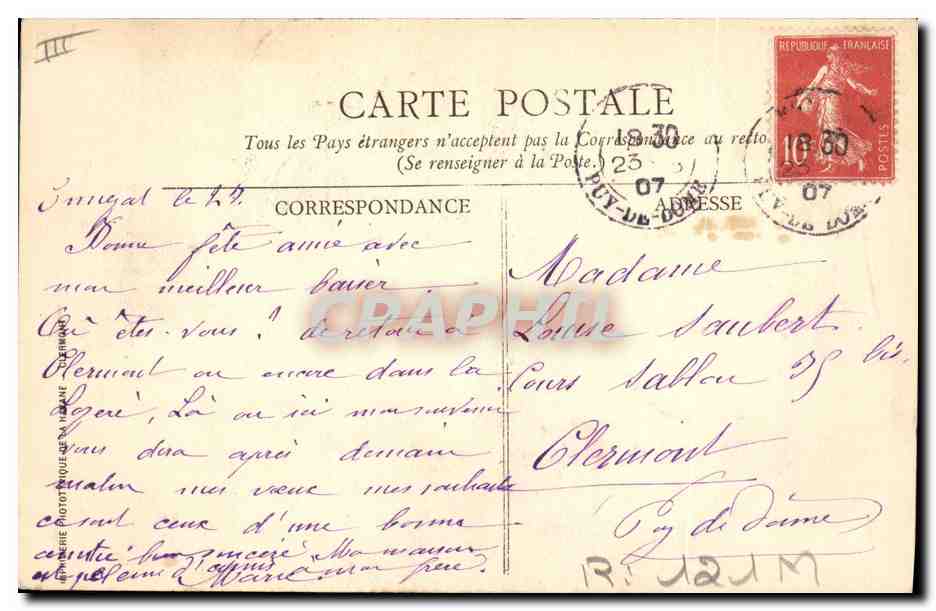 III
CARTE POSTALE
Tous les Pays étrangers n'acceptent pas la Correspondance au recto
(Se renseigner à la Poste.)
REPUBLIQUE FRANÇAISE
10
POSTES
18 30
23
07
PUY-DE-DOME
18 30
23
07
PUY-DE-DOME
CORRESPONDANCE
ADRESSE
le 22.
Bonne fête amie avec
mon meilleur baiser.
Où êtes-vous? de retour à
Clermont ou encore dans la
Lozère, Là ou ici mon souvenir
vous dira après demain
matin mes vœux mes souhaits
ce sont ceux d'une bonne
amitié bien sincère Ma maison
est pleine d'amis à mon père.
Marie
Madame
Louise Jaubert
Cours Sablon 35 bis.
Clermont
Puy de Dôme
CPAPHIL
IMPRIMERIE PHOTOTYPIQUE DE LA HAVANE CLERMONT
R. 121M